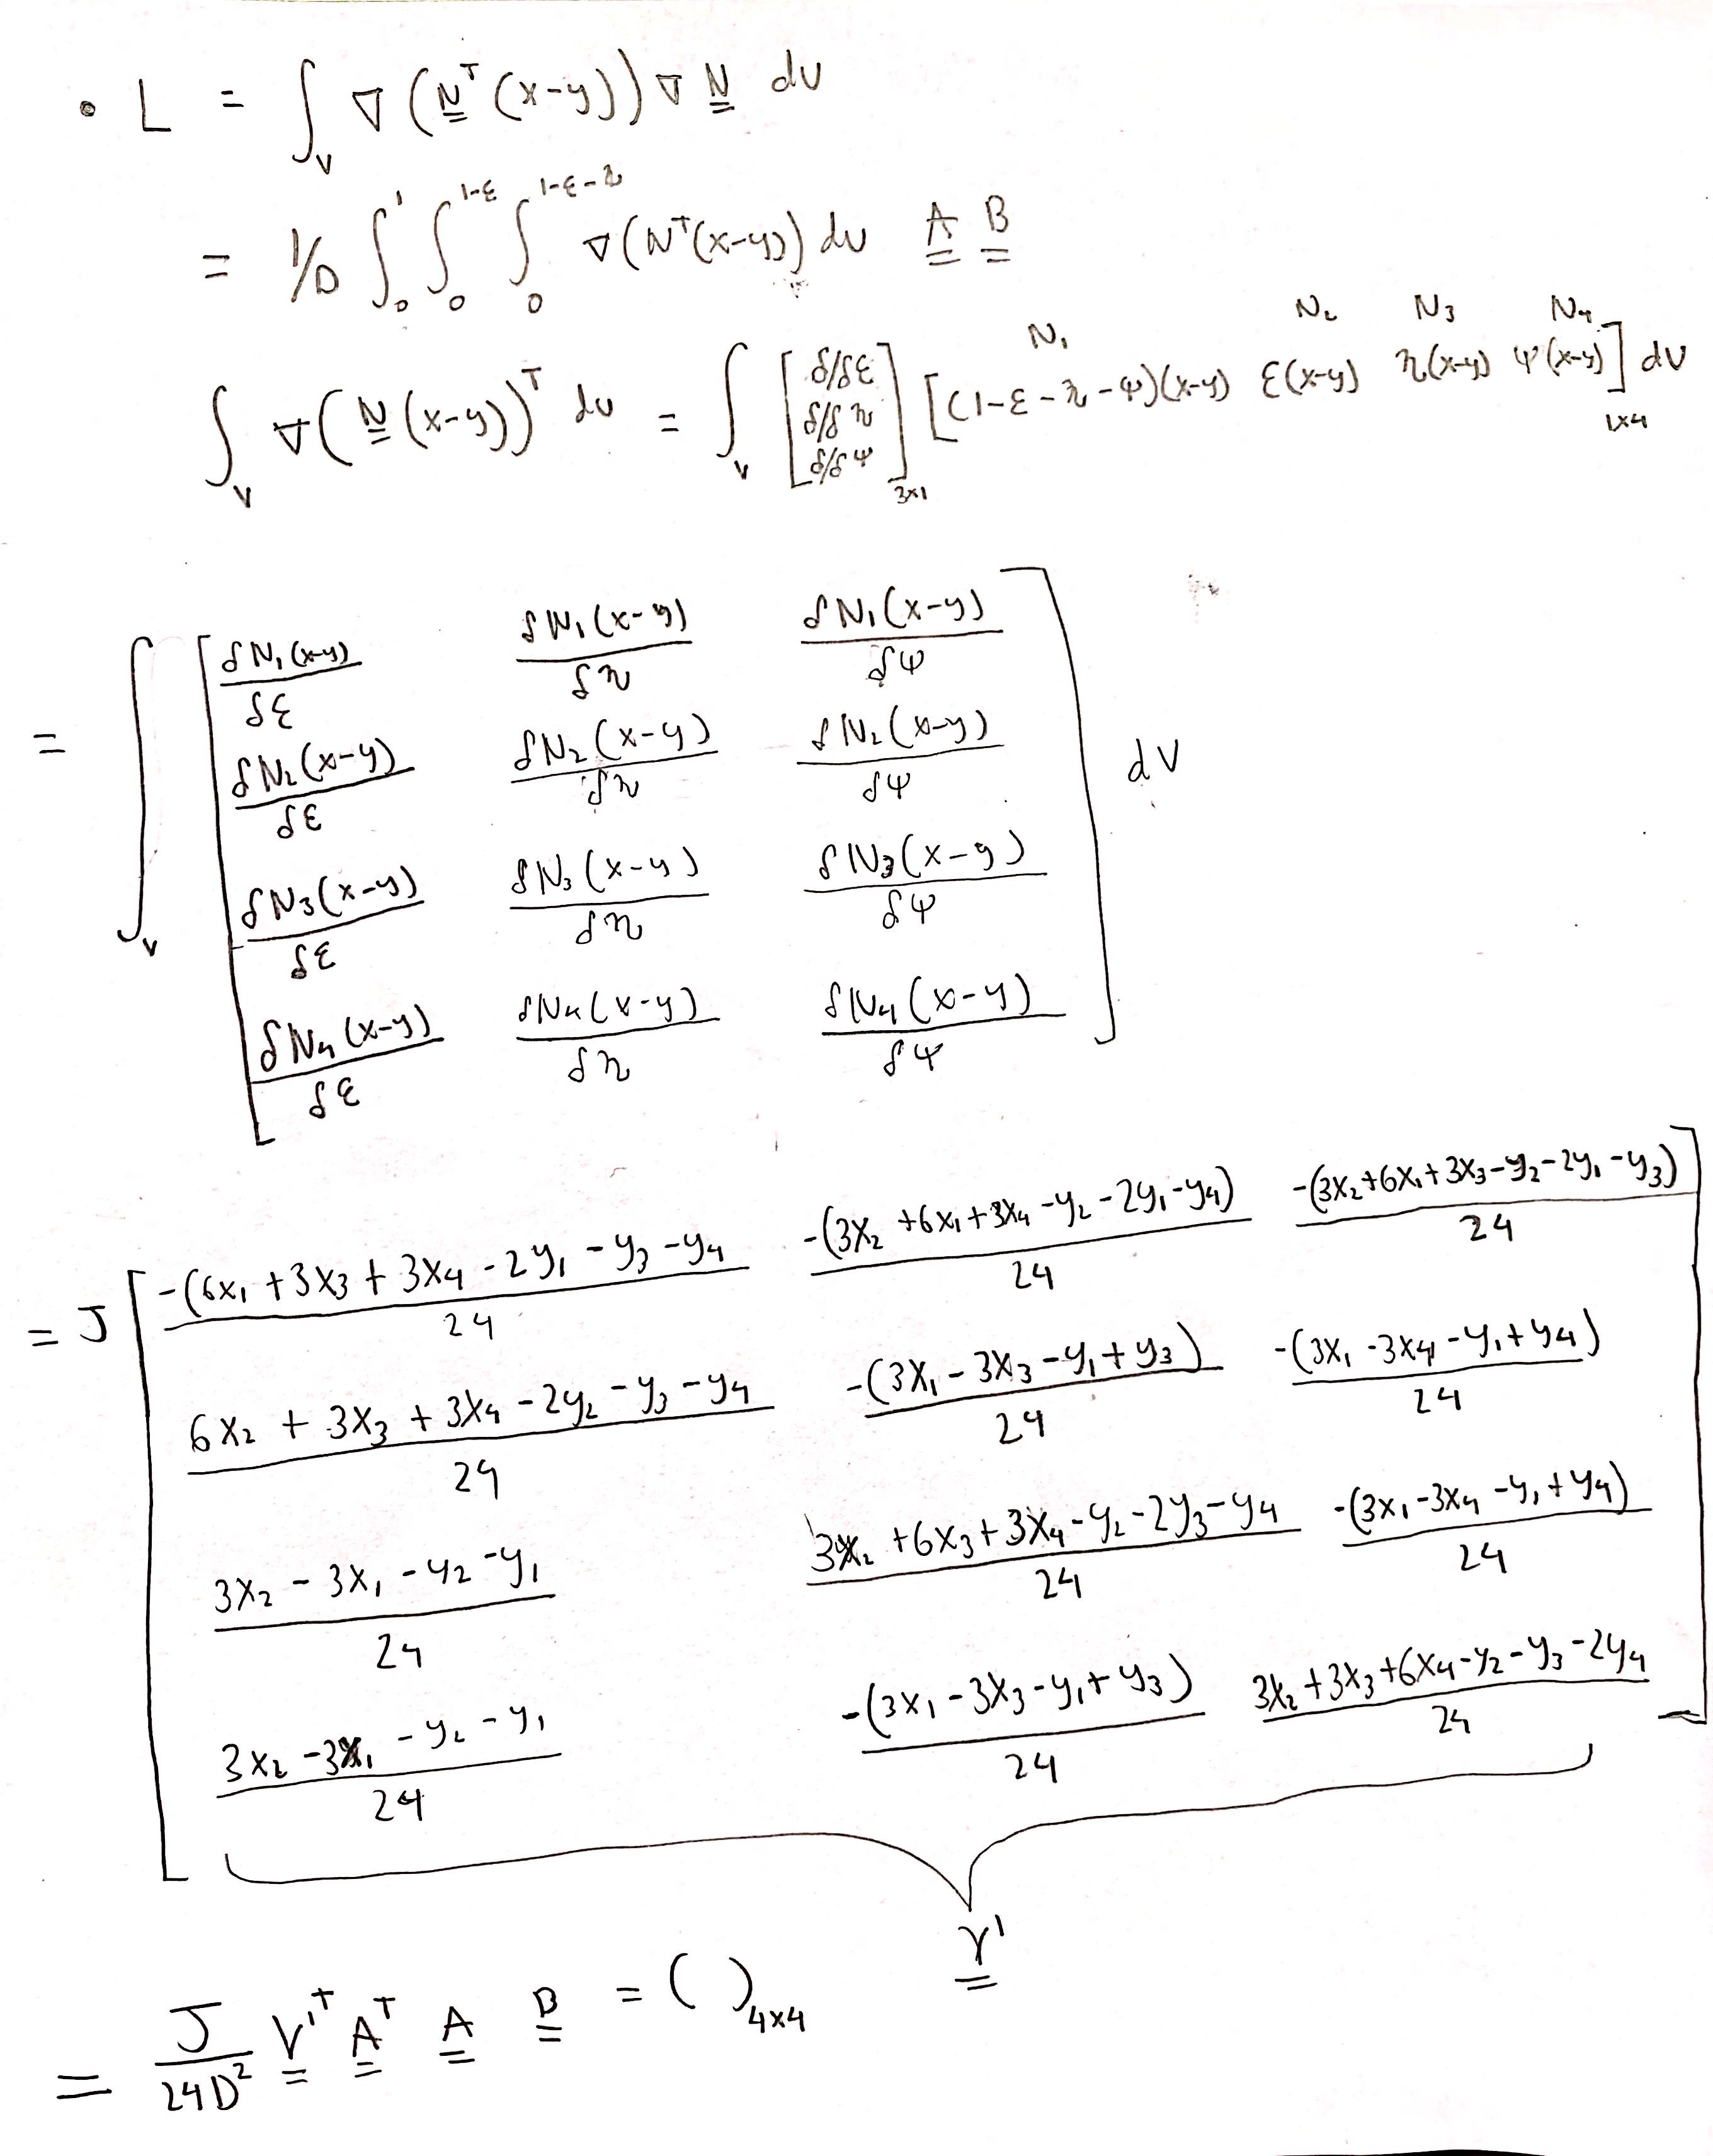 • L = ∫_V ∇ (N^T (x-y)) ∇ N dv
= 1/D ∫_0^1 ∫_0^{1-ε} ∫_0^{1-ε-η} ∇(N^T(x-y)) dv A B
∫_V ∇(N (x-y))^T dv = ∫_V [δ/δε δ/δη δ/δψ]_{3x1} [(1-ε-η-ψ)(x-y) ε(x-y) η(x-y) ψ(x-y)]_{1x4} dv
N_1 N_2 N_3 N_4
= ∫_V [ δN_1(x-y)/δε δN_1(x-y)/δη δN_1(x-y)/δψ
δN_2(x-y)/δε δN_2(x-y)/δη δN_2(x-y)/δψ
δN_3(x-y)/δε δN_3(x-y)/δη δN_3(x-y)/δψ
δN_4(x-y)/δε δN_4(x-y)/δη δN_4(x-y)/δψ ] dV
= J [ -(6x_1+3x_3+3x_4-2y_1-y_3-y_4/24 -(3x_2+6x_1+3x_4-y_2-2y_1-y_4)/24 -(3x_2+6x_1+3x_3-y_2-2y_1-y_3)/24
6x_2+3x_3+3x_4-2y_2-y_3-y_4/24 -(3x_1-3x_3-y_1+y_3)/24 -(3x_1-3x_4-y_1+y_4)/24
3x_2-3x_1-y_2-y_1/24 3x_2+6x_3+3x_4-y_2-2y_3-y_4/24 -(3x_1-3x_4-y_1+y_4)/24
3x_2-3x_1-y_2-y_1/24 -(3x_1-3x_3-y_1+y_3)/24 3x_2+3x_3+6x_4-y_2-y_3-2y_4/24 ]
γ'
= J/24D^2 V'^T A^T A B = ( )_{4x4}